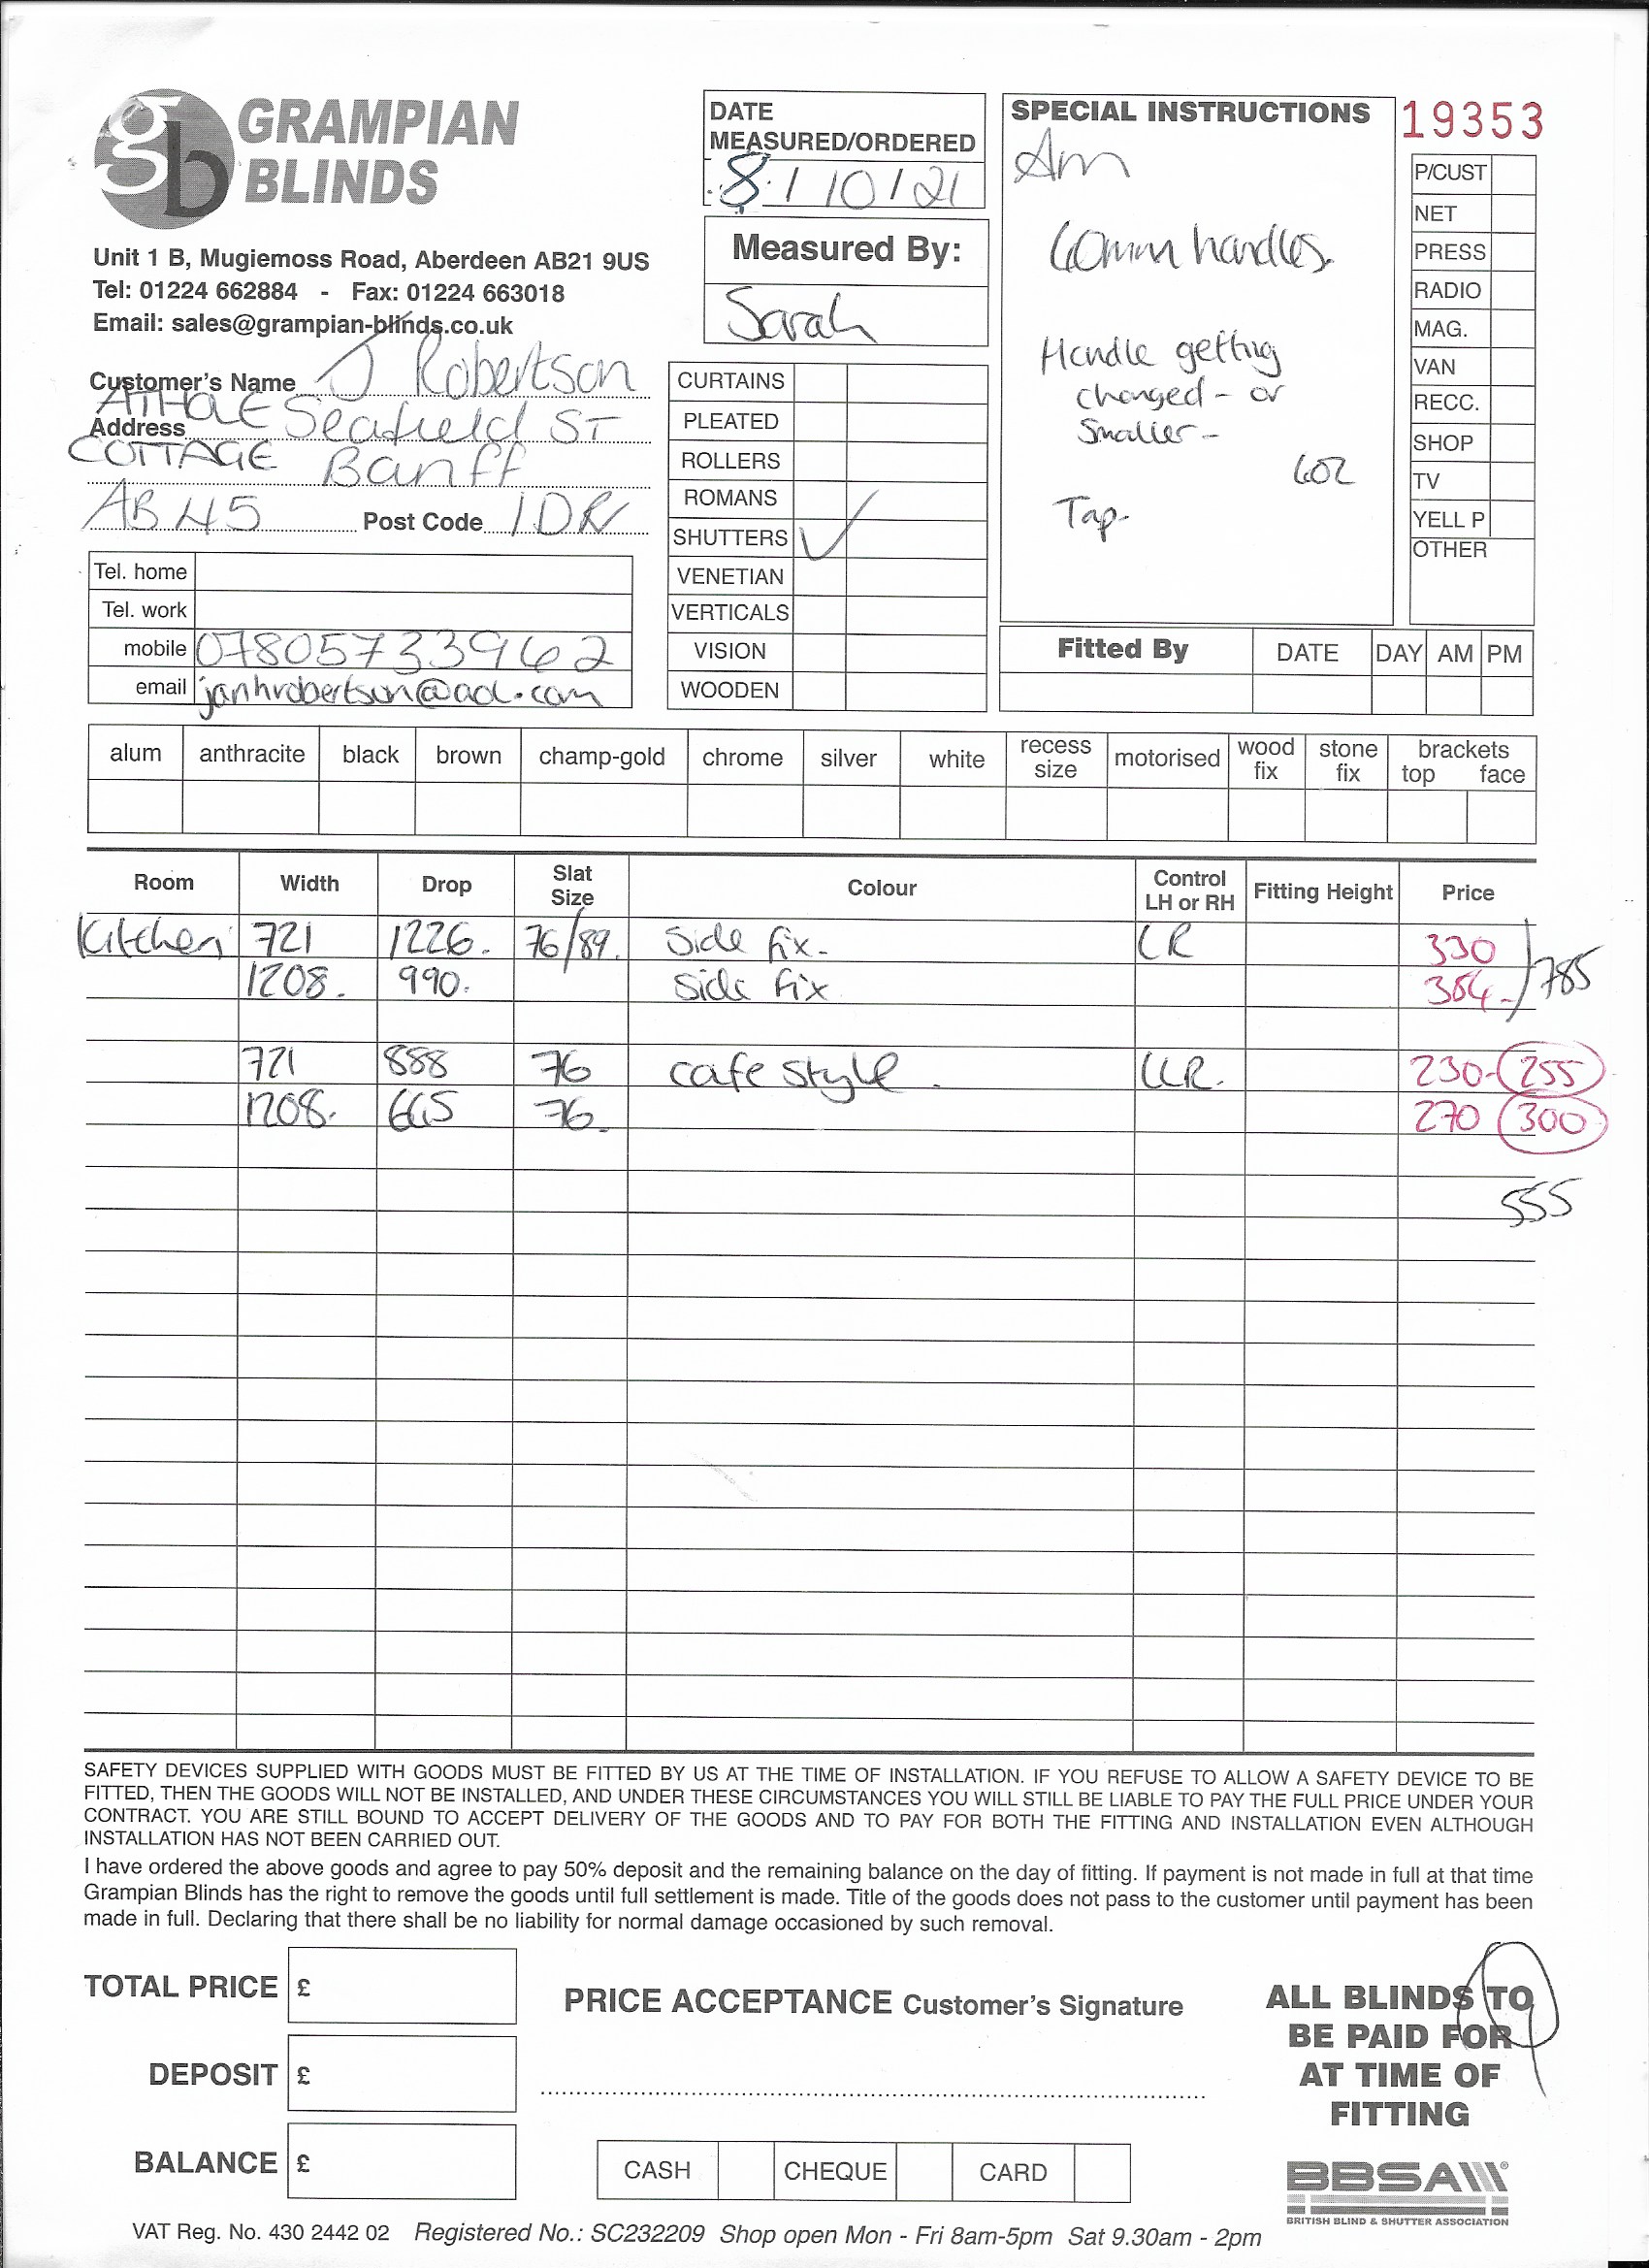 gb GRAMPIAN
BLINDS
Unit 1 B, Mugiemoss Road, Aberdeen AB21 9US
Tel: 01224 662884 - Fax: 01224 663018
Email: sales@grampian-blinds.co.uk
Customer's Name J Robertson
ATHOLE Seafield ST
Address
COTTAGE Banff
AB45 Post Code 1DR
Tel. home
Tel. work
mobile 07805733962
email janhrobertson@aol.com
DATE
MEASURED/ORDERED
8/10/21
Measured By:
Sarah
CURTAINS
PLEATED
ROLLERS
ROMANS
SHUTTERS ✓
VENETIAN
VERTICALS
VISION
WOODEN
SPECIAL INSTRUCTIONS
Am
60mm handles.
Handle getting
changed - or
Smaller -
602
Tap-
19353
P/CUST
NET
PRESS
RADIO
MAG.
VAN
RECC.
SHOP
TV
YELL P
OTHER
Fitted By DATE DAY AM PM
alum anthracite black brown champ-gold chrome silver white recess size motorised wood fix stone fix brackets top face
Room Width Drop Slat Size Colour Control LH or RH Fitting Height Price
Kitchen 721 1226. 76/89. Side fix- LR 330
1208. 990. Side fix 384- /785
721 888 76 cafe style. LLR. 230- 255
1208. 665 76. 270 300
555
SAFETY DEVICES SUPPLIED WITH GOODS MUST BE FITTED BY US AT THE TIME OF INSTALLATION. IF YOU REFUSE TO ALLOW A SAFETY DEVICE TO BE
FITTED, THEN THE GOODS WILL NOT BE INSTALLED, AND UNDER THESE CIRCUMSTANCES YOU WILL STILL BE LIABLE TO PAY THE FULL PRICE UNDER YOUR
CONTRACT. YOU ARE STILL BOUND TO ACCEPT DELIVERY OF THE GOODS AND TO PAY FOR BOTH THE FITTING AND INSTALLATION EVEN ALTHOUGH
INSTALLATION HAS NOT BEEN CARRIED OUT.
I have ordered the above goods and agree to pay 50% deposit and the remaining balance on the day of fitting. If payment is not made in full at that time
Grampian Blinds has the right to remove the goods until full settlement is made. Title of the goods does not pass to the customer until payment has been
made in full. Declaring that there shall be no liability for normal damage occasioned by such removal.
TOTAL PRICE £
DEPOSIT £
BALANCE £
PRICE ACCEPTANCE Customer's Signature
CASH CHEQUE CARD
ALL BLINDS TO
BE PAID FOR
AT TIME OF
FITTING
BBSA
BRITISH BLIND & SHUTTER ASSOCIATION
VAT Reg. No. 430 2442 02 Registered No.: SC232209 Shop open Mon - Fri 8am-5pm Sat 9.30am - 2pm